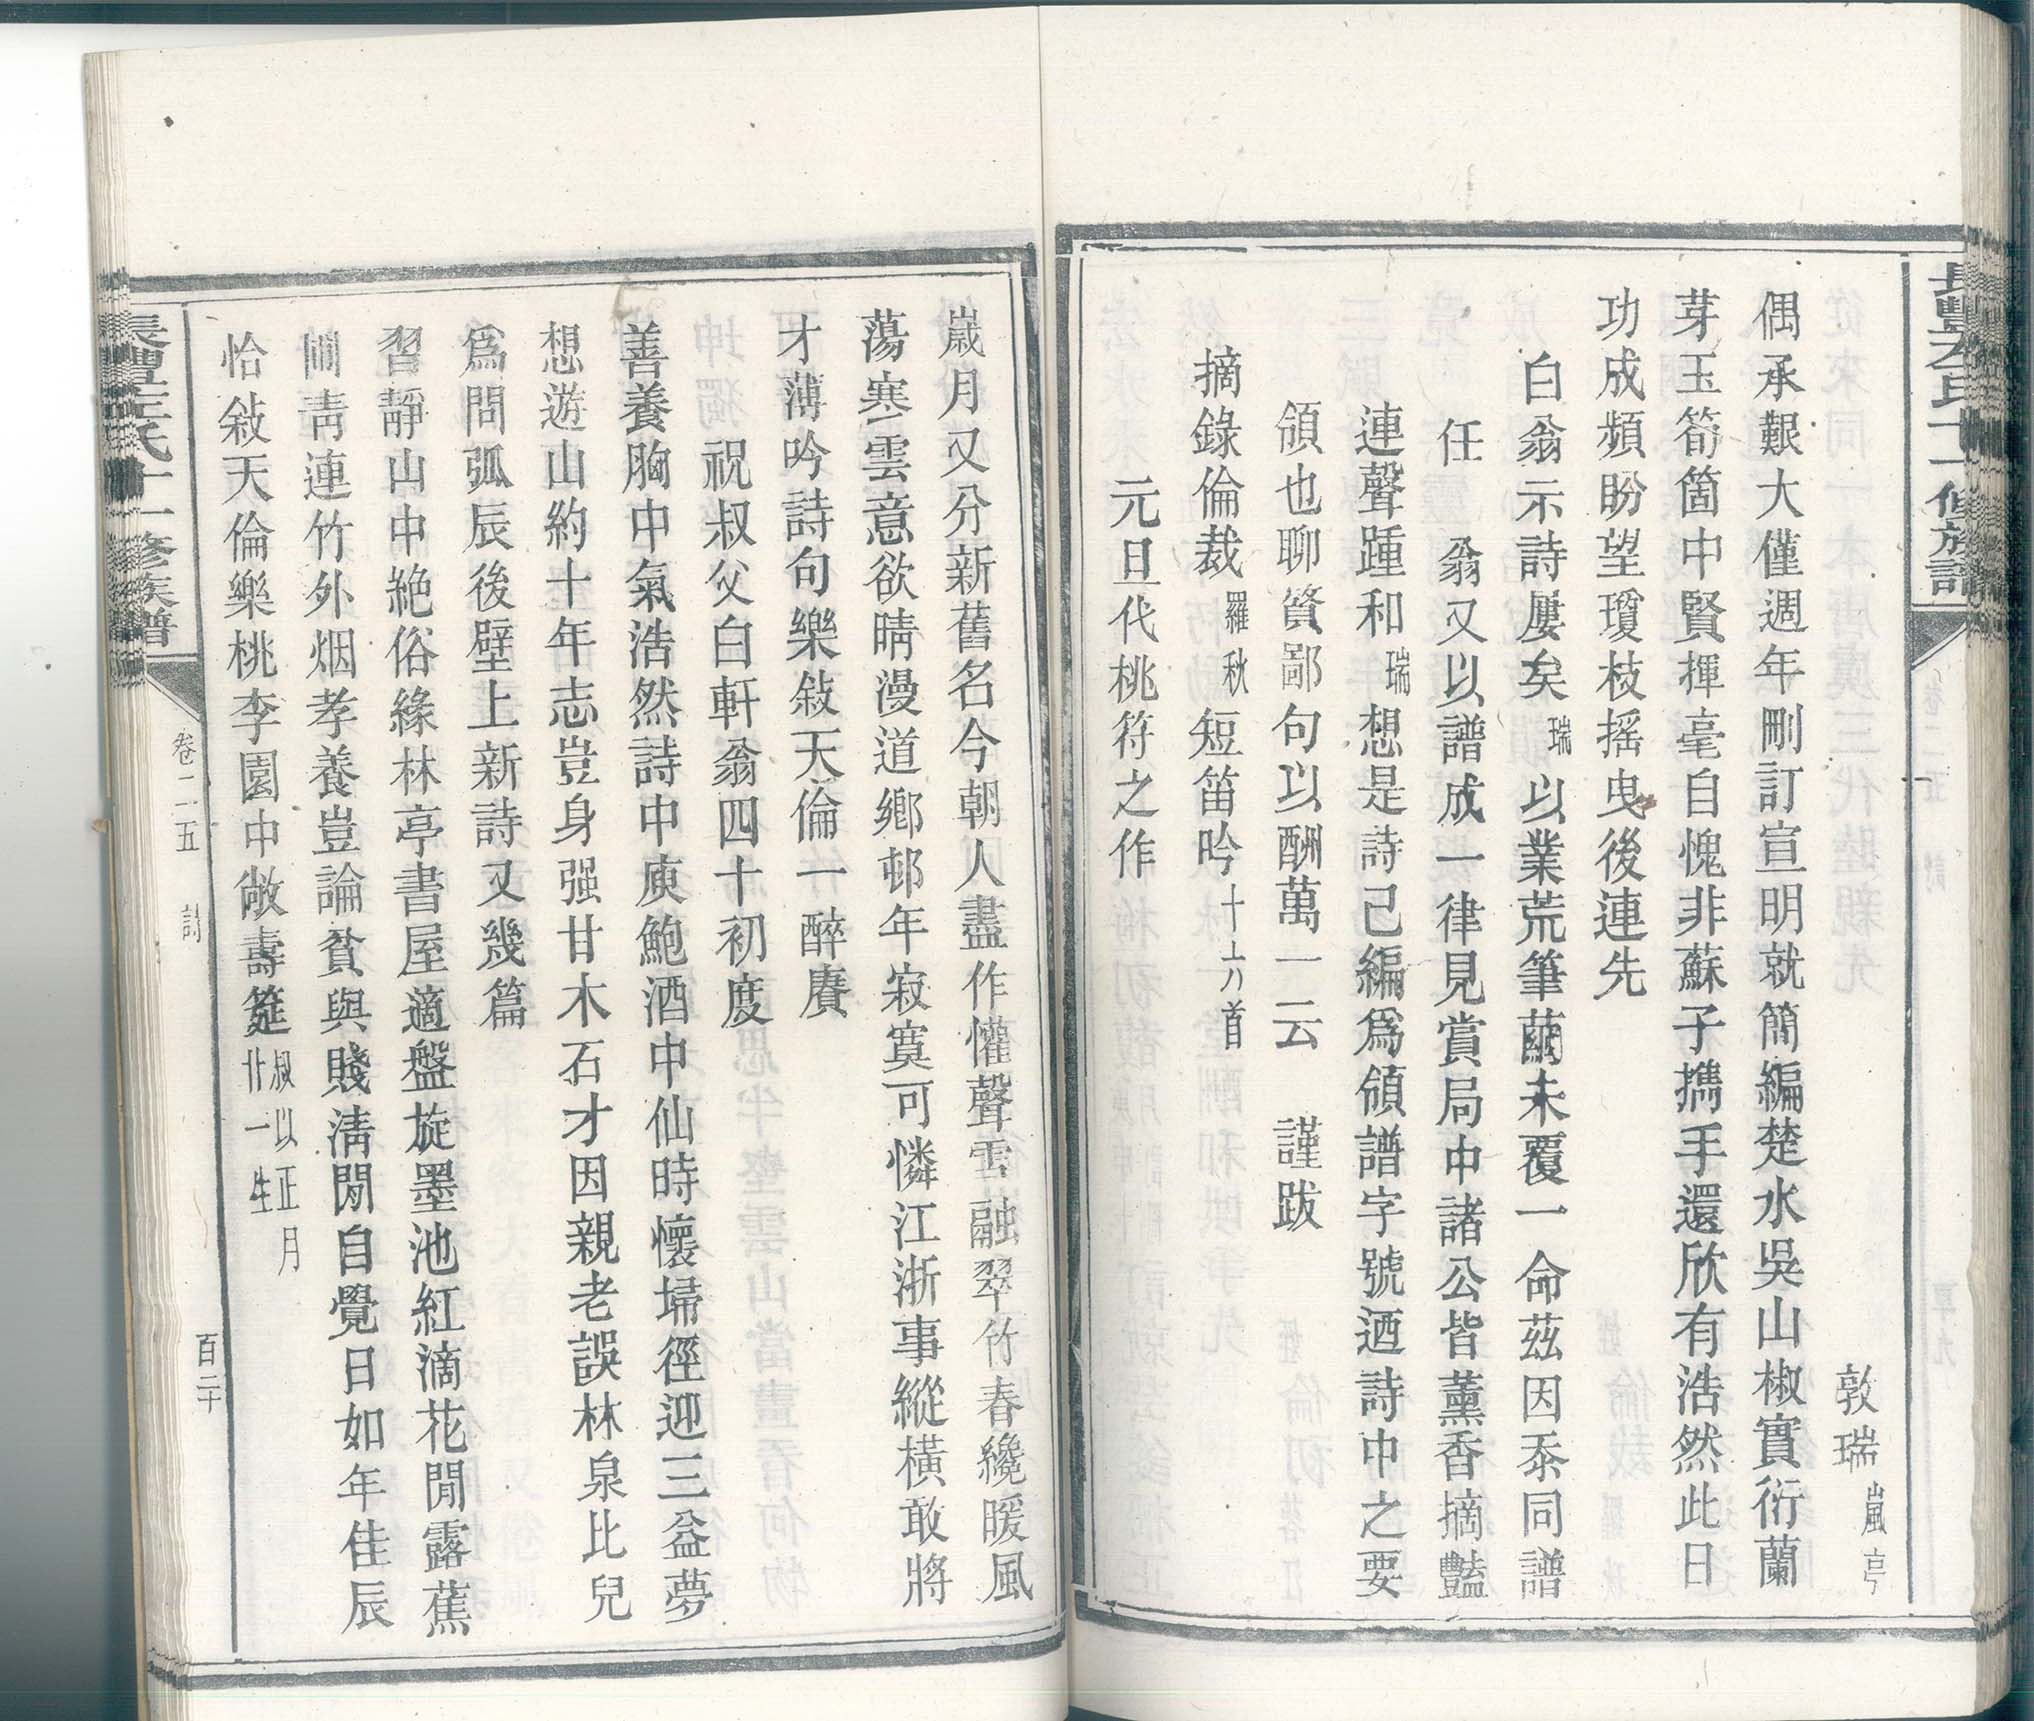 敦瑞嵐亭
偶承艱大僅週年刪訂宣明就簡編楚水吳山椒實衍蘭
芽玉筍箇中賢揮毫自愧非蘇子擕手還欣有浩然此日
功成頻盼望瓊枝摇曳後連先
白翁示詩屢矣瑞以業荒筆繭未覆一命茲因忝同譜
任　翁又以譜成一律見賞局中諸公皆薰香摘豔
連聲踵和瑞想是詩已編爲領譜字號迺詩中之要
領也聊贅鄙句以酬萬一云　謹跋
摘錄倫裁羅秋短笛吟十六首
元旦代桃符之作
歲月又分新舊名今朝人盡作懽聲雲融翠竹春纔暖風
蕩寒雲意欲晴漫道鄉邨年寂寞可憐江浙事縱橫敢將
才薄吟詩句樂敍天倫一醉賡
祝叔父白軒翁四十初度
善養胸中氣浩然詩中庾鮑酒中仙時懷埽徑迎三益夢
想遊山約十年志豈身强甘木石才因親老誤林泉比兒
爲問弧辰後壁上新詩又幾篇
習靜山中絶俗緣林亭書屋適盤旋墨池紅滴花閒露蕉
圃青連竹外烟孝養豈論貧與賤淸閒自覺日如年佳辰
恰敍天倫樂桃李園中敞壽筵叔以正月廿一生
長豐左氏十一修族譜
卷二五
詩
百二十